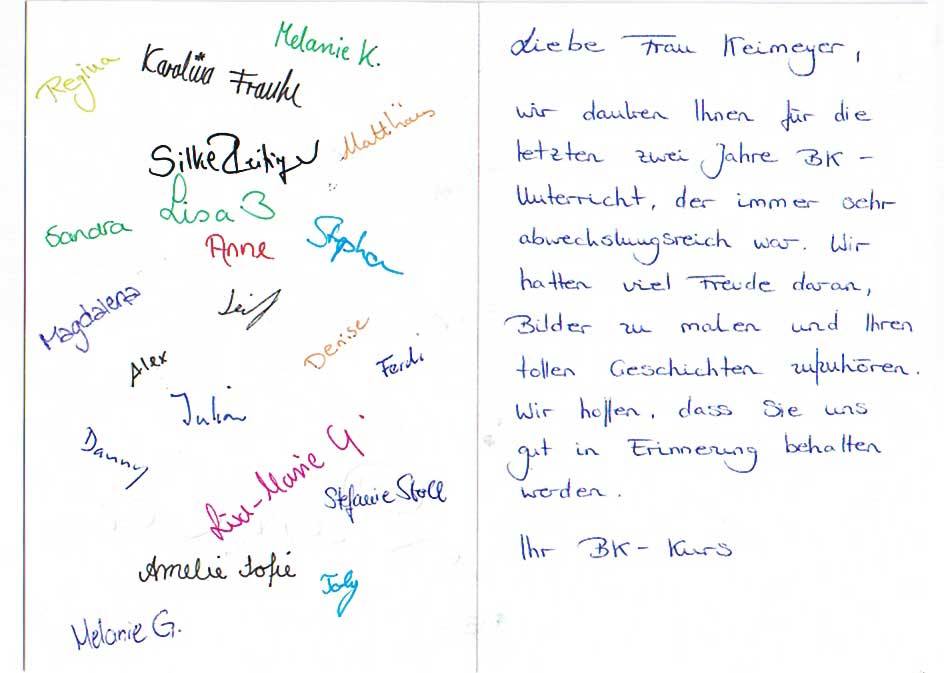 Melanie K.
Regina
Karolina Frauke
Matthäus
Silke
Lisa B
Sandra
Anne
Stephan
Magdalena
Leif
Denise
Alex
Ferdi
Julian
Danny
Lisa-Marie G.
Stefanie Stoll
Amelie Sofie
Toby
Melanie G.
Liebe Frau Keimeyer,
wir danken Ihnen für die
letzten zwei Jahre BK-
Unterricht, der immer sehr
abwechslungsreich war. Wir
hatten viel Freude daran,
Bilder zu malen und Ihren
tollen Geschichten zuzuhören.
Wir hoffen, dass Sie uns
gut in Erinnerung behalten
werden.
Ihr BK-Kurs